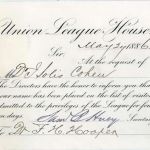 Union League House
May 24 1886
Sir,
At the request of
Mr J Solis Cohen
The Directors have the honor to inform you that
your name has been placed on the list of visitors
admitted to the privileges of the League for four
days.
Secretary
To Dr. F. H. Hooper